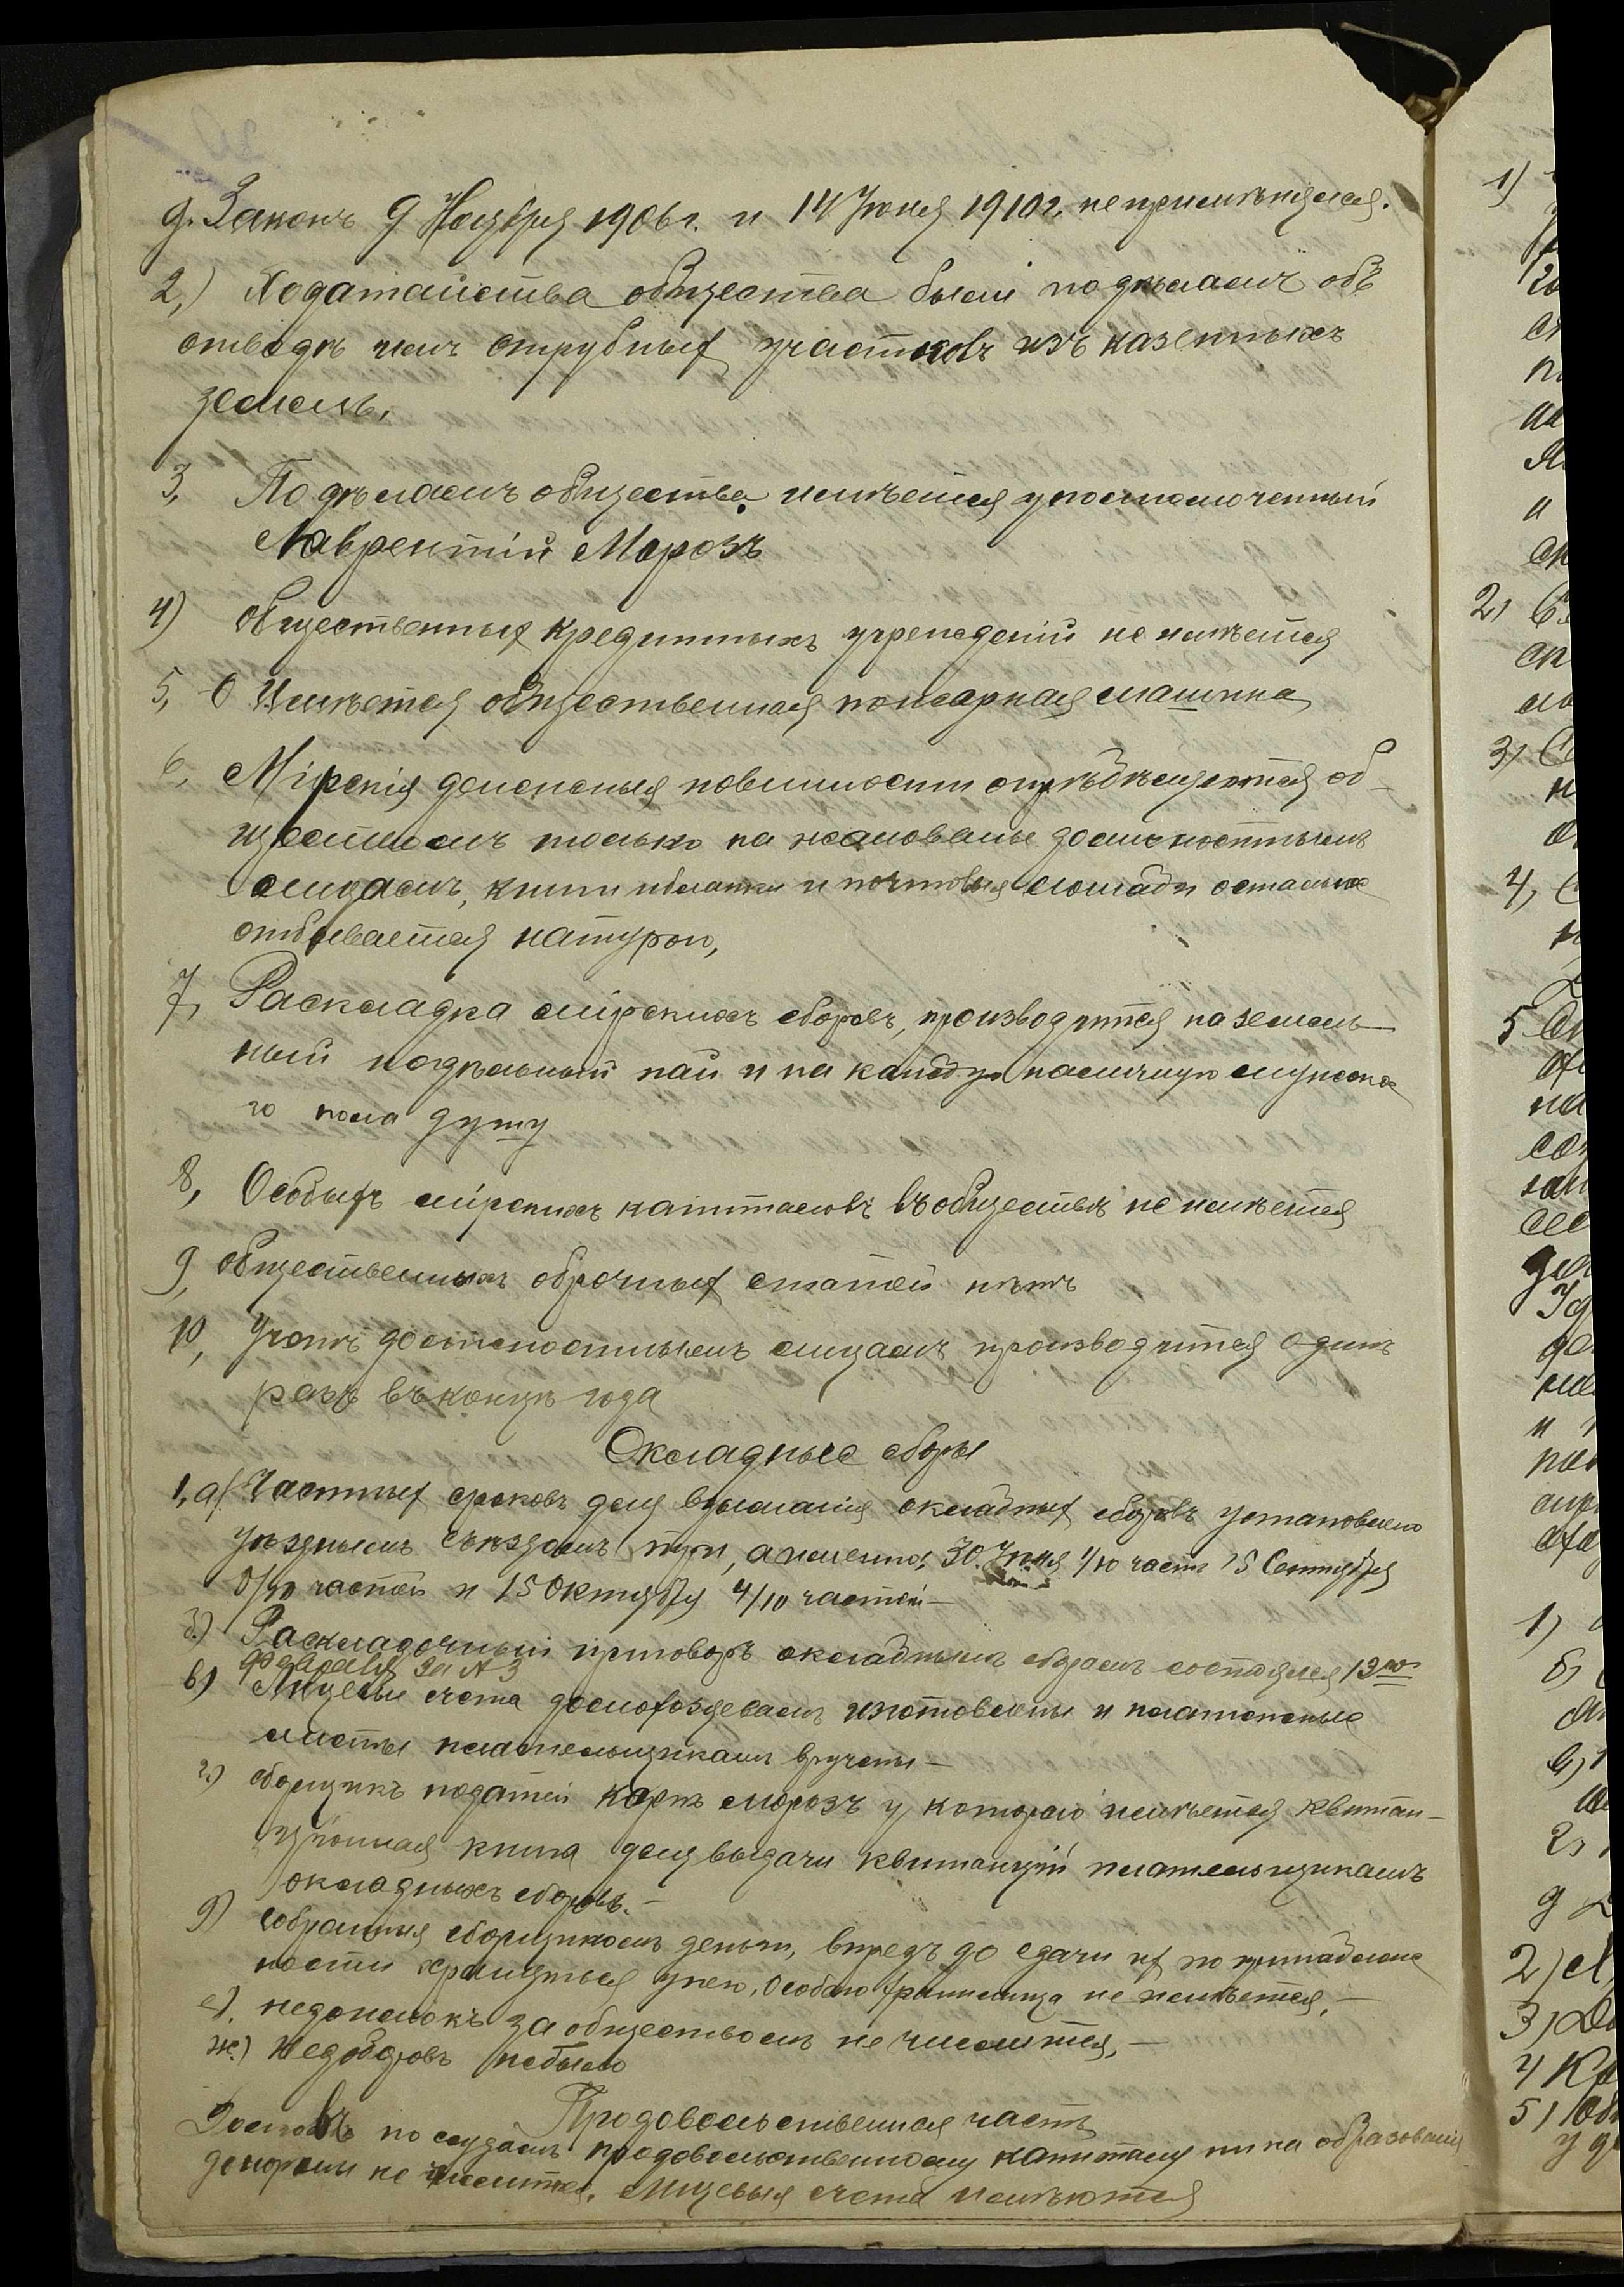 д. Законъ 9 Ноября 1906 г. и 14 Іюня 1910 г. непримѣнялся.
2,) Ходатайства общества были по дѣламъ объ
отводѣ имъ отрубных участковъ изъ казенныхъ
земель,
3, По дѣламъ общества имѣется уполномоченный
Лаврентій Морозъ
4) общественных кредитныхъ учрежденій не имѣется
5, Имѣется общественная пожарная машина
6, Мірскія денежныя повинности опредѣляются об-
ществомъ только на жалованье должностнымъ
лицамъ, книги и бланки и почтовыя лошади остальное
отбывается натурою,
7, Раскладка мірскихъ сборовъ, производится на земель-
ный надѣльный пай и на каждую наличную мужско
го пола душу
8, Особыхъ мірскихъ капиталовъ въ обществѣ не имѣется
9, общественныхъ оброчных статей нѣтъ
10, Учетъ должностнымъ лицамъ производится одинъ
разъ въ концѣ года
Окладные сборы
1, а) Частных сроковъ для взысканія окладных сборовъ установлено
уѣзднымъ съѣздомъ три, а именно: 30 Іюня 1/10 часть 15 Сентября
5/10 частей и 15 Октября 4/10 частей —
б.) Раскладочный приговоръ окладнымъ сборамъ состоялся 13
февраля за № 3
в) Лицевые счета домохозяевамъ изготовлены и платежные
листы плательщикамъ вручены —
г.) сборщикъ податей Карпъ Морозъ у котораго имѣется квитан-
ціонная книга для выдачи квитанцій плательщикамъ
окладныхъ сборовъ. —
д) собранныя сборщикомъ деньги, впредь до сдачи их по принадлеж
ности хранятся у него, особаго хранилища не имѣется, —
е). недоимокъ за обществомъ не числится, —
ж.) Недоборовъ небыло
Продовольственная часть
Долговъ по ссудамъ продовольственному капиталу ни на образованія
не числится. Лицевыя счета имѣются